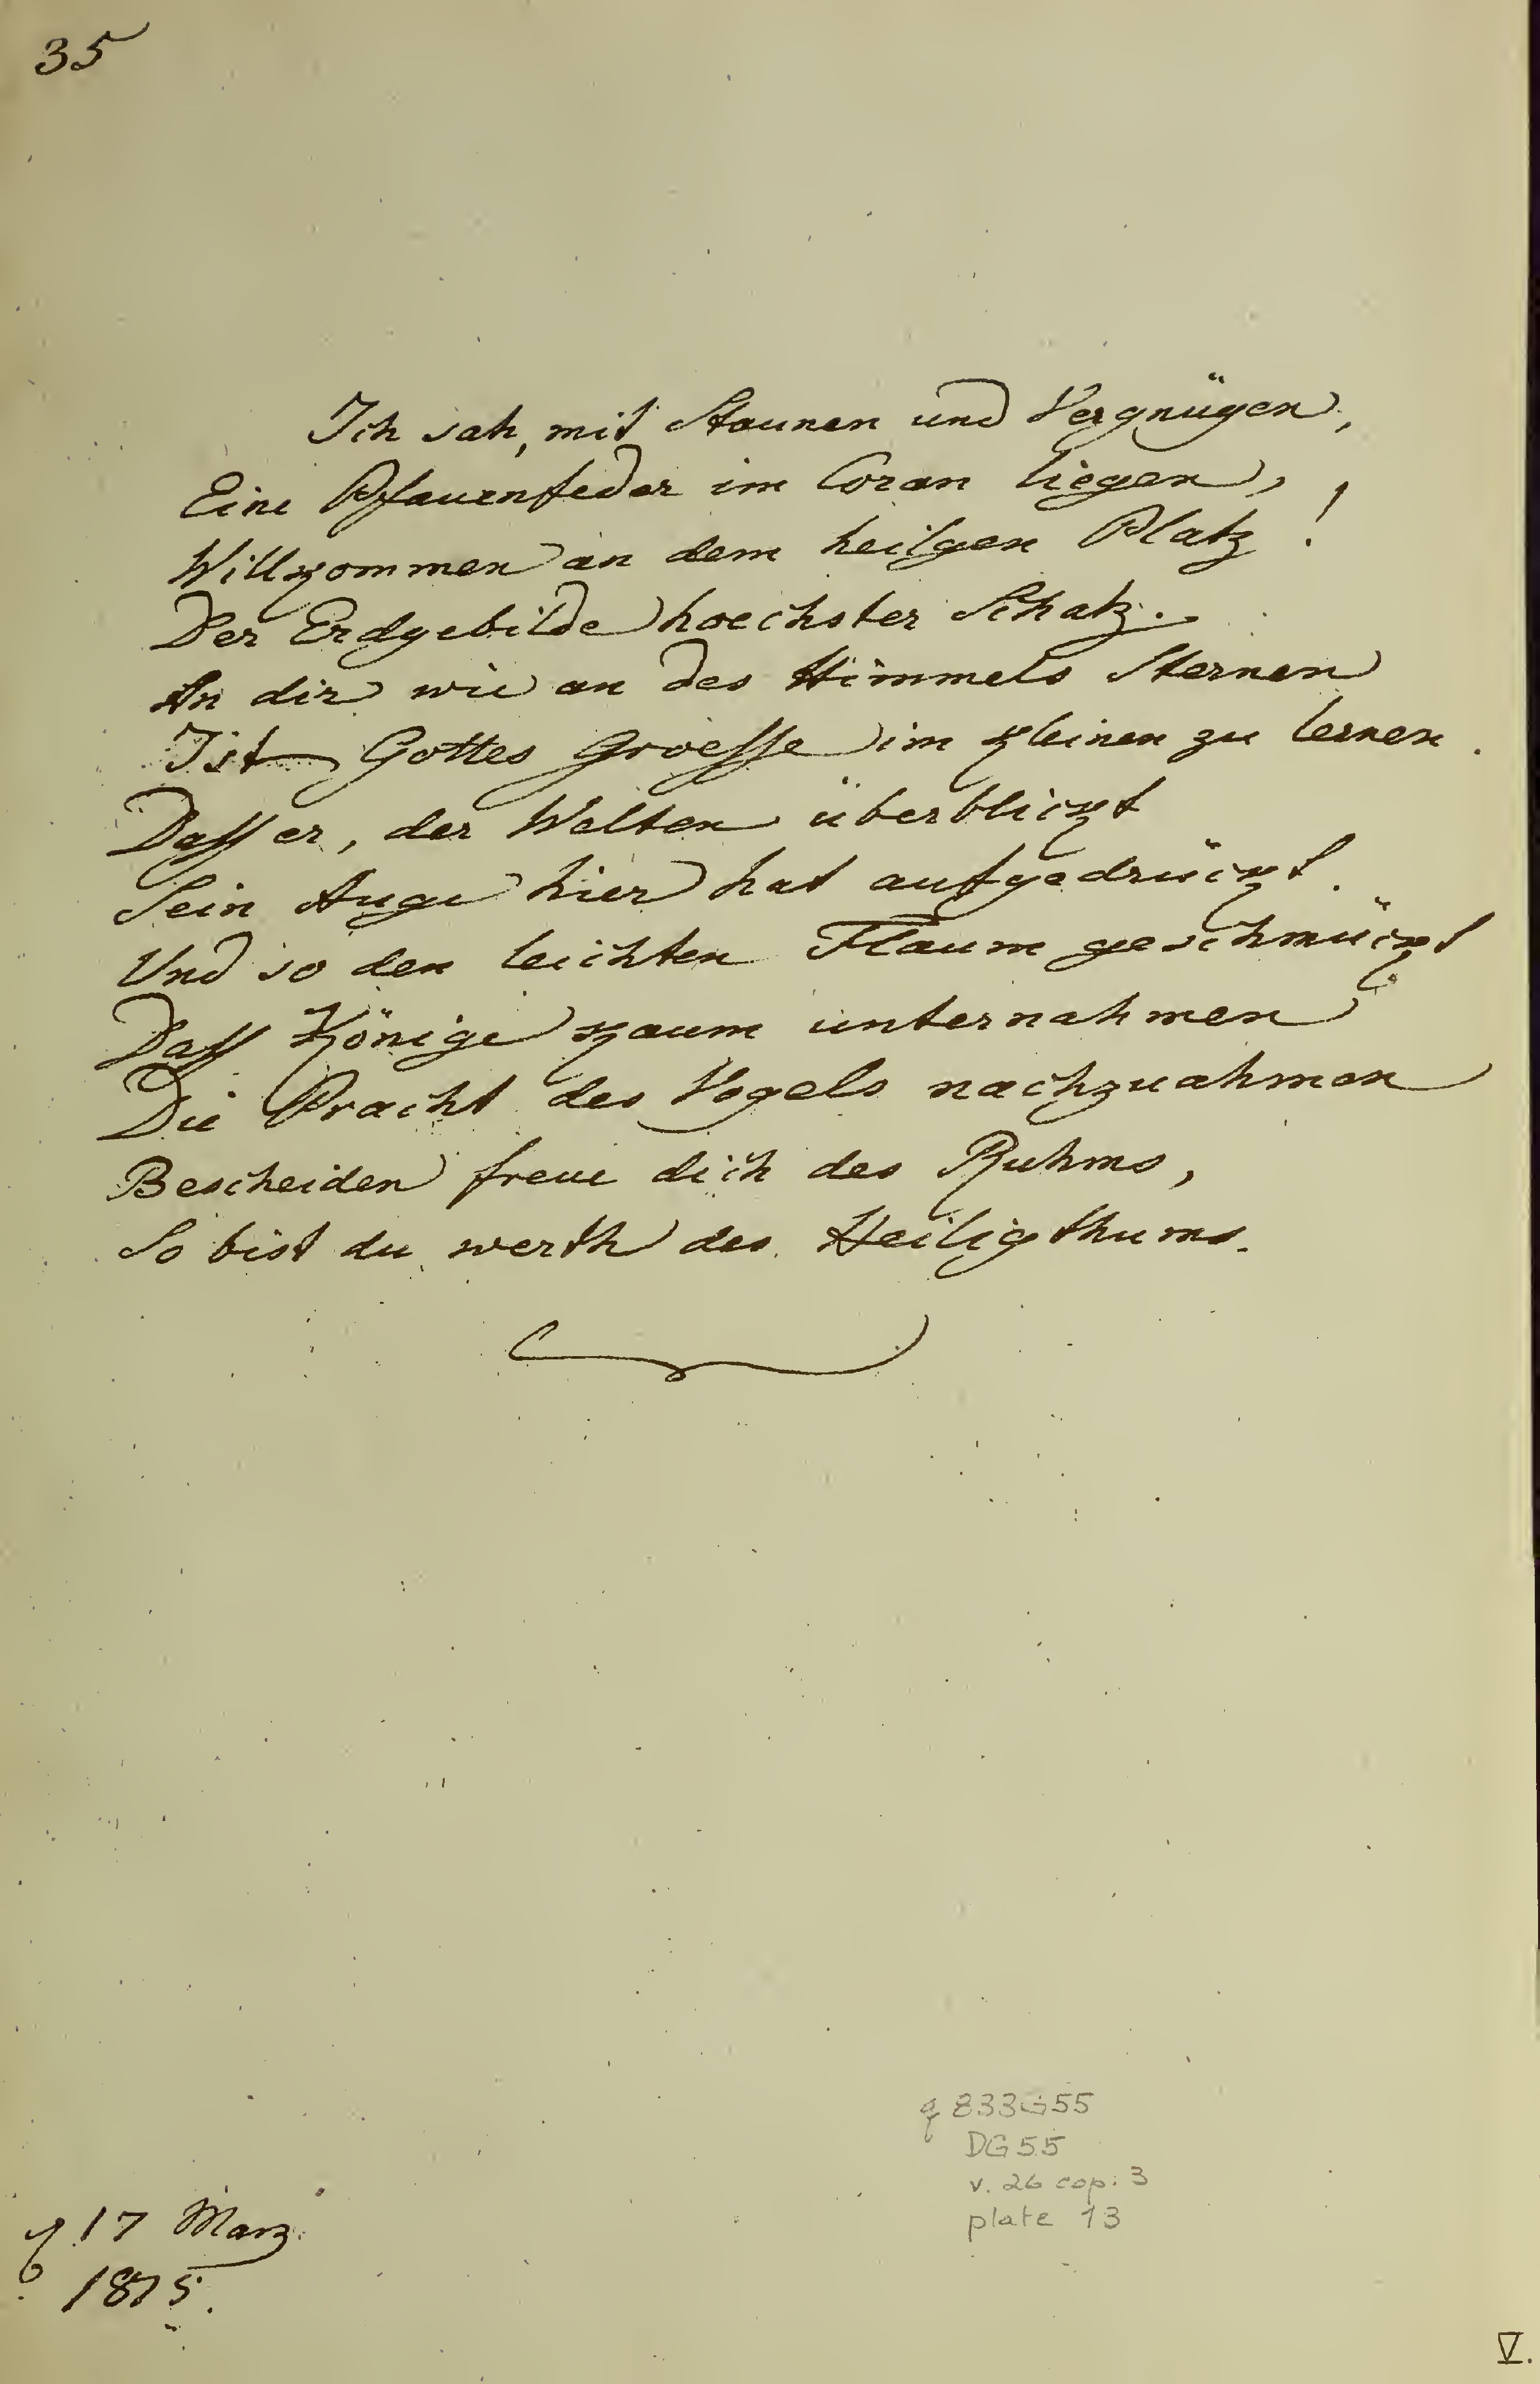 35
Ich sah, mit Staunen und Vergnügen,
Eine Pfauenfeder im Coran liegen,
Willkommen an dem heilgen Platz!
Der Erdgebilde hoechster Schatz.
An dir wie an des Himmels Sternen
Ist Gottes Groesse im kleinen zu lernen.
Dass er, der Welten überblickt
Sein Auge hier hat aufgedrückt.
Und so den leichten Flaum geschmückt
Dass Könige kaum unternahmen
Die Pracht des Vogels nachzuahmen
Bescheiden freue dich des Ruhms,
So bist du werth des Heiligthums.
q 833G55
DG55
v. 26 cop. 3
plate 13
17 Marz
1815.
V.